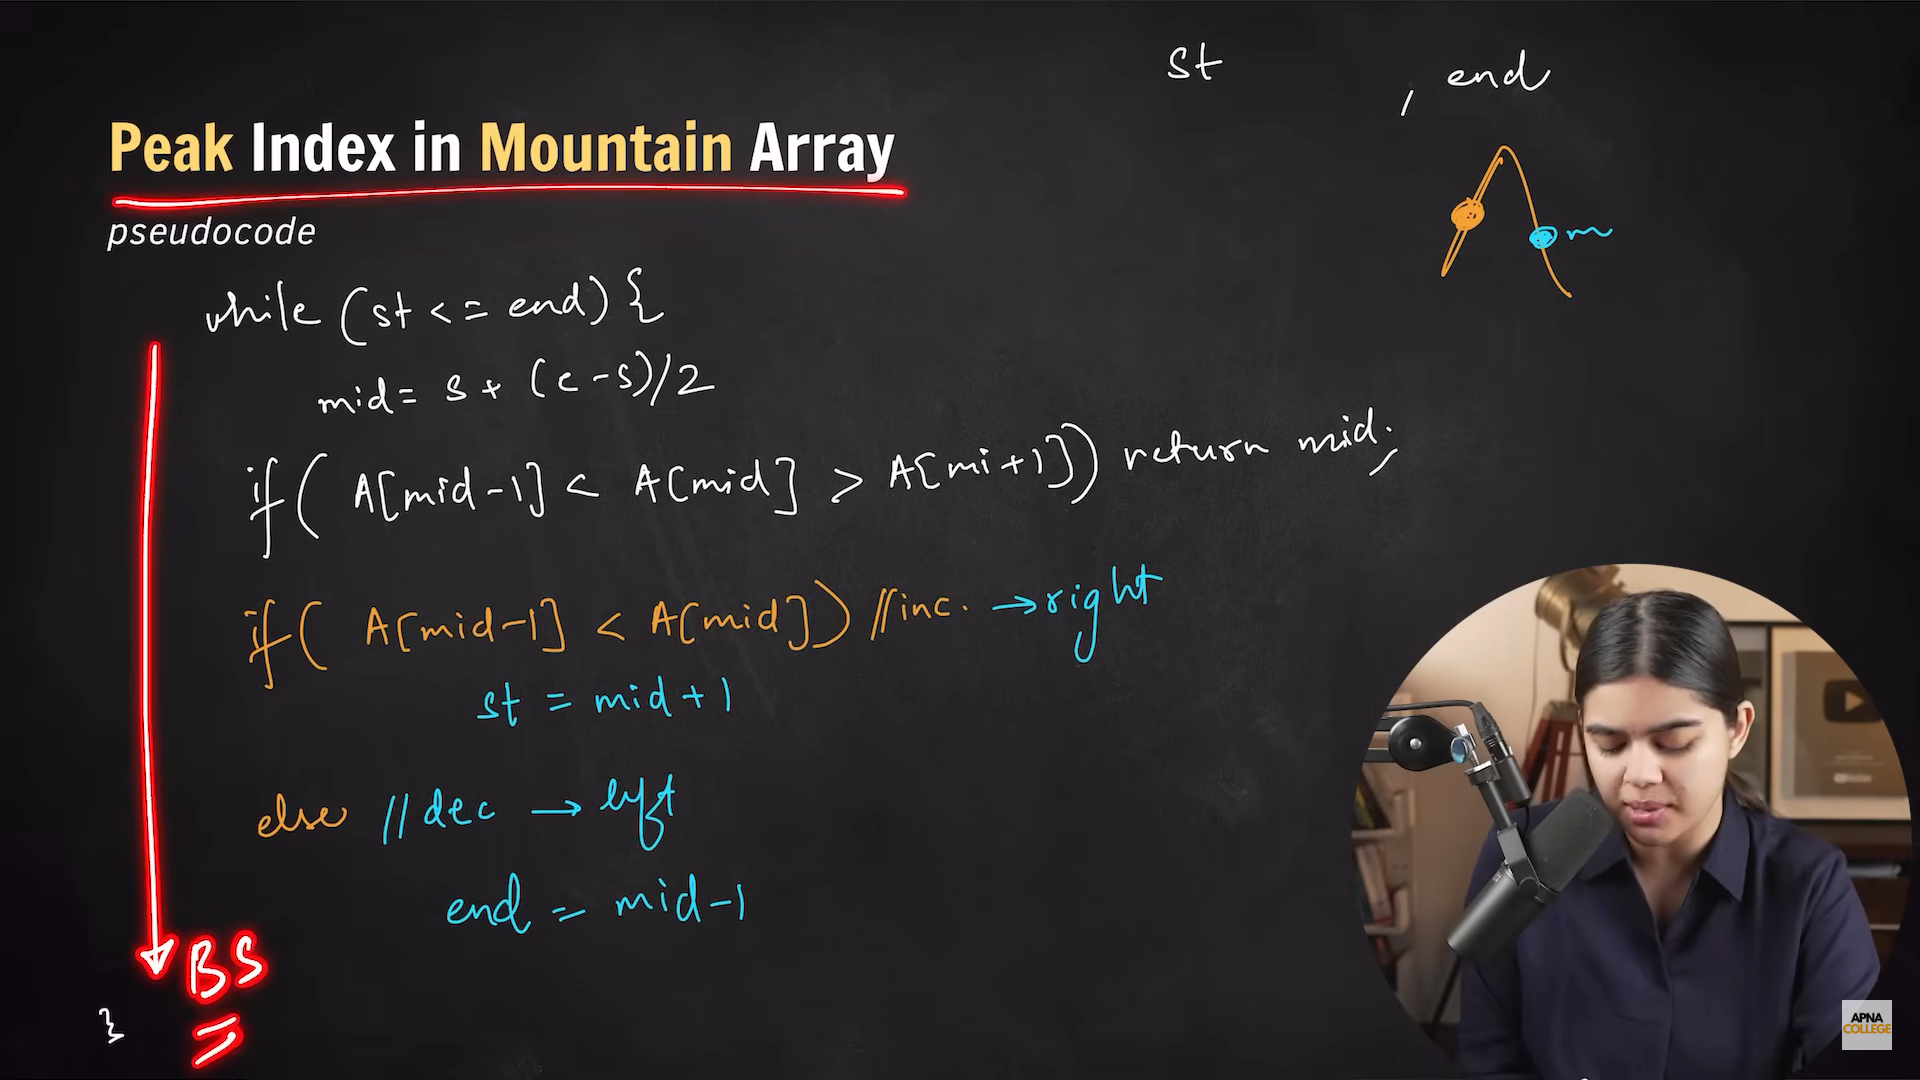 st , end
Peak Index in Mountain Array
pseudocode
while (st <= end) {
mid = s + (e-s)/2
if ( A[mid-1] < A[mid] > A[mi+1]) return mid;
m
if ( A[mid-1] < A[mid]) //inc. → right
st = mid+1
else //dec → left
end = mid-1
BS
}
APNA
COLLEGE